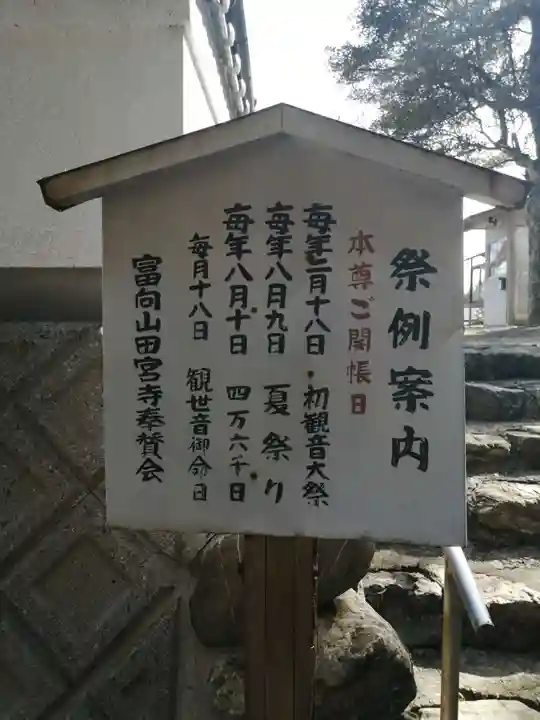 祭例案内
本尊ご開帳日
毎年一月十八日・初観音大祭
毎年八月九日 夏祭り
毎年八月十日 四万六千日
毎月十八日 観世音御命日
富向山田宮寺奉賛会